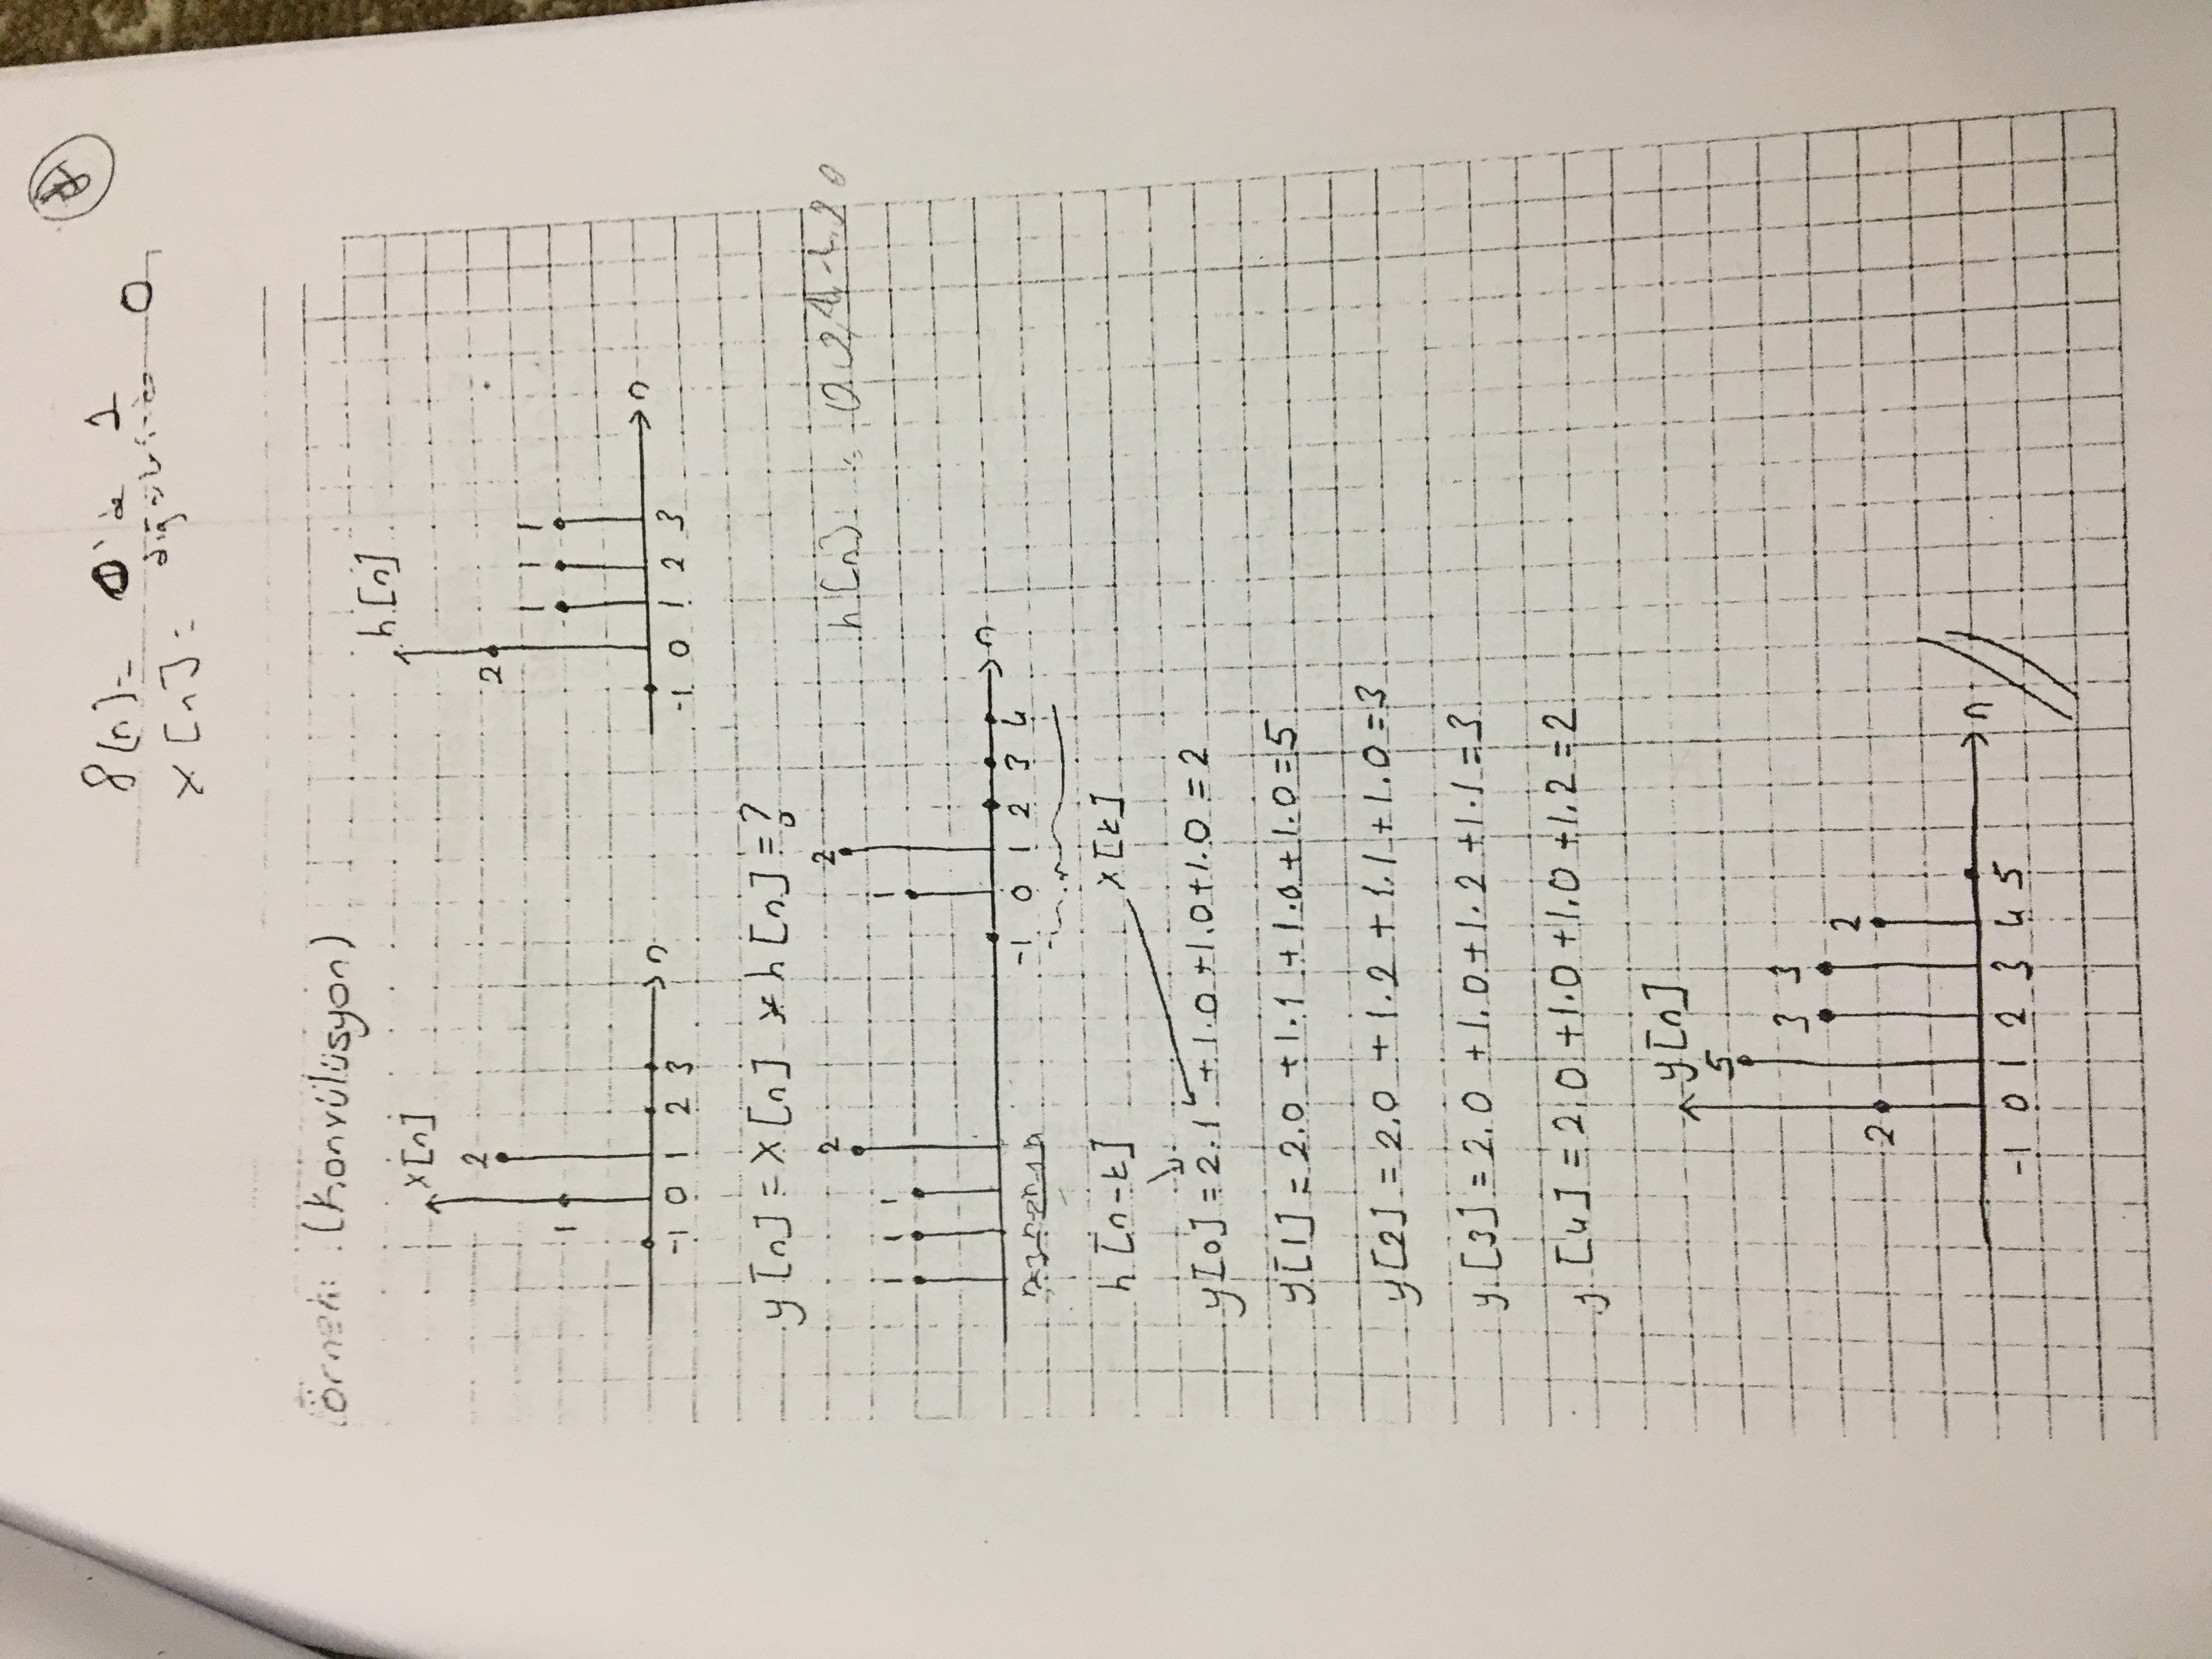 δ[n]= 0'de 1
diğerlerinde 0
x[n]=
örnek: (Konvülüsyon)
x[n]
2
1
-1 0 1 2 3 n
h[n]
2
1 1 1
-1 0 1 2 3 n
y[n] = x[n] * h[n] = ?
h[n]
1 1 1 2
1 2
n-3 n-2 n-1 n
-1 0 1 2 3 4 n
h[n-k] x[k]
y[0] = 2.1 + 1.0 + 1.0 + 1.0 = 2
y[1] = 2.0 + 1.1 + 1.0 + 1.0 = 5
y[2] = 2.0 + 1.2 + 1.1 + 1.0 = 3
y[3] = 2.0 + 1.0 + 1.2 + 1.1 = 3
y[4] = 2.0 + 1.0 + 1.0 + 1.2 = 2
y[n]
5
3 3
2
2
-1 0 1 2 3 4 5 n